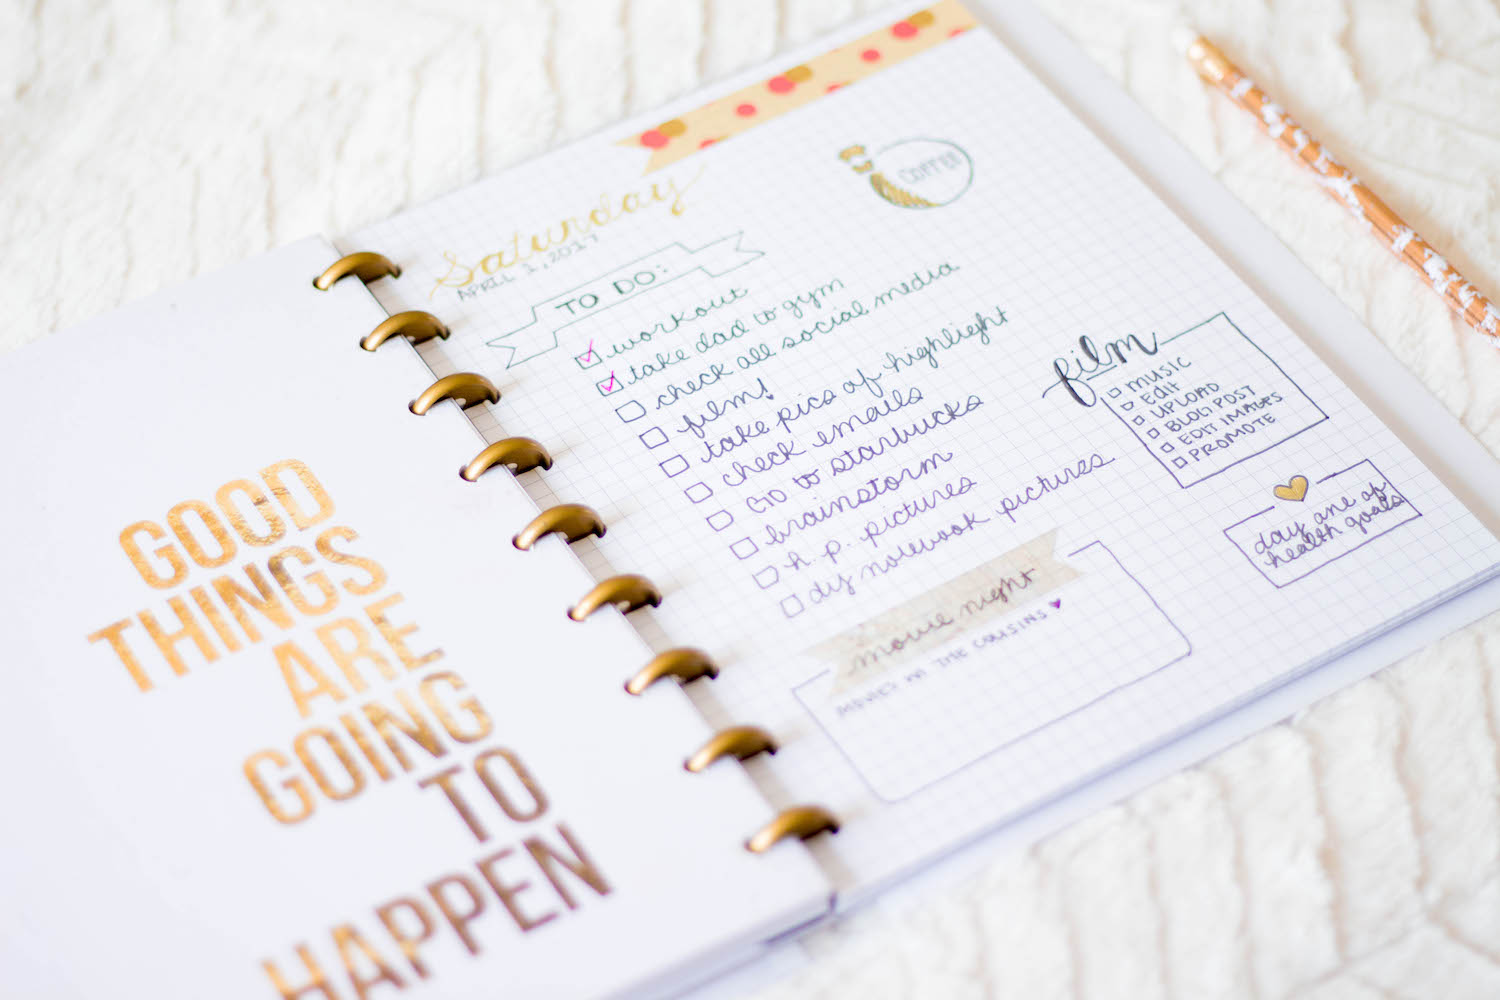 GOOD
THINGS
ARE
GOING
TO
HAPPEN
Saturday
APRIL 1, 2017
COFFEE
TO DO:
workout
take dad to gym
check all social media
film!
take pics of highlight
check emails
GO to starbucks
brainstorm
h. p. pictures
diy notebook pictures
film
MUSIC
Edit
UPLOAD
BLOG POST
EDIT IMAGES
PROMOTE
day one of
health goals
movie night
MOVIES W THE COUSINS ♥